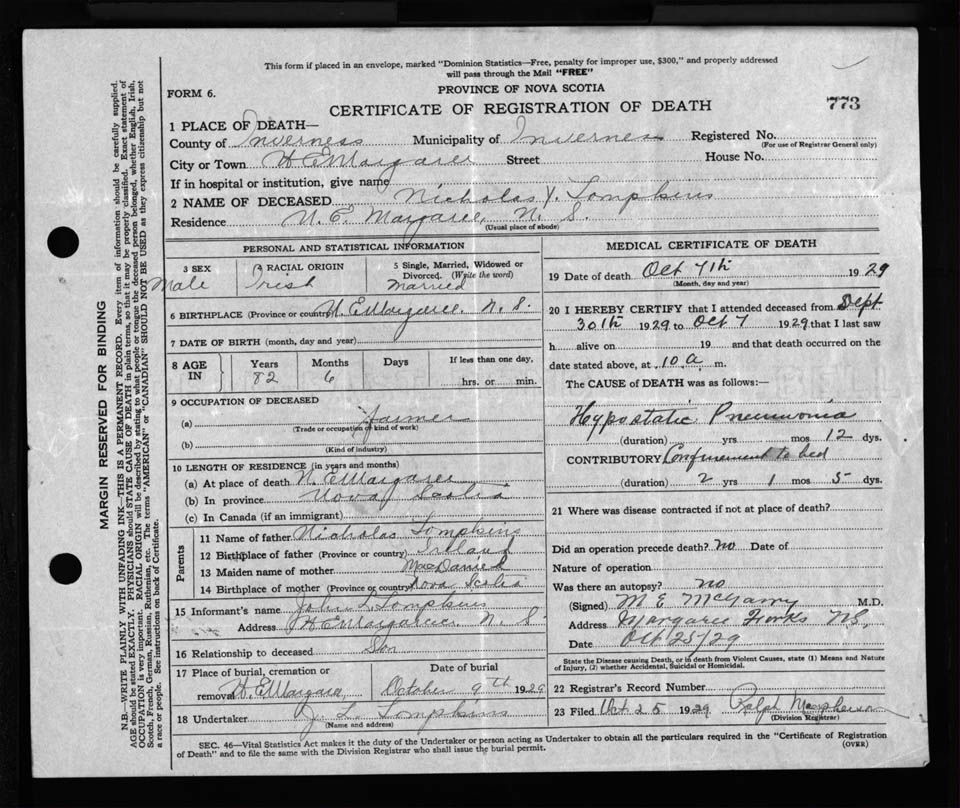 This form if placed in an envelope, marked "Dominion Statistics—Free, penalty for improper use, $300," and properly addressed
will pass through the Mail "FREE"
FORM 6.
PROVINCE OF NOVA SCOTIA
CERTIFICATE OF REGISTRATION OF DEATH
773
1 PLACE OF DEATH—
County of Inverness Municipality of Inverness Registered No.
(For use of Registrar General only)
City or Town N E Margaree Street House No.
If in hospital or institution, give name
2 NAME OF DECEASED Nicholas Y. Tompkins
Residence N. E. Margaree, N. S.
(Usual place of abode)
PERSONAL AND STATISTICAL INFORMATION
3 SEX 4 RACIAL ORIGIN 5 Single, Married, Widowed or
Divorced. (Write the word)
Male Irish Married
6 BIRTHPLACE (Province or country) N. E Margaree. N. S.
7 DATE OF BIRTH (month, day and year)
8 AGE IN Years Months Days If less than one day,
82 6 hrs. or min.
9 OCCUPATION OF DECEASED
(a) Farmer
(Trade or occupation or kind of work)
(b)
(Kind of industry)
10 LENGTH OF RESIDENCE (in years and months)
(a) At place of death N. E Margaree
(b) In province Nova Scotia
(c) In Canada (if an immigrant)
Parents
11 Name of father Nicholas Tompkins
12 Birthplace of father (Province or country) Irland
13 Maiden name of mother MacDaniel
14 Birthplace of mother (Province or country) Nova Scotia
15 Informant's name John L Tompkins
Address N E Margaree. N. S
16 Relationship to deceased Son
17 Place of burial, cremation or Date of burial
removal N. E Margaree October 9th 1929
18 Undertaker J. L. Tompkins
(Name and address)
MEDICAL CERTIFICATE OF DEATH
19 Date of death Oct 7th 1929
(Month, day and year)
20 I HEREBY CERTIFY that I attended deceased from Sept
30th 1929 to Oct 7 1929 that I last saw
h alive on 19 and that death occurred on the
date stated above, at 10 a m.
The CAUSE of DEATH was as follows:—
Hypostatic Pneumonia
(duration) yrs mos 12 dys.
CONTRIBUTORY Confinement to bed
(duration) 2 yrs 1 mos 5 dys.
21 Where was disease contracted if not at place of death?
Did an operation precede death? no Date of
Nature of operation
Was there an autopsy? no
(Signed) M E McGarry M.D.
Address Margaree Forks NS.
Date Oct 25/29
State the Disease causing Death, or in death from Violent Causes, state (1) Means and Nature
of Injury, (2) whether Accidental, Suicidal or Homicidal.
22 Registrar's Record Number
23 Filed Oct 25 1929 Ralph Macpherson
(Division Registrar)
SEC. 46—Vital Statistics Act makes it the duty of the Undertaker or person acting as Undertaker to obtain all the particulars required in the "Certificate of Registration
of Death" and to file the same with the Division Registrar who shall issue the burial permit.
(OVER)
MARGIN RESERVED FOR BINDING
N.B.—WRITE PLAINLY WITH UNFADING INK—THIS IS A PERMANENT RECORD. Every item of information should be carefully supplied.
AGE should be stated EXACTLY. PHYSICIANS should STATE CAUSE OF DEATH in plain terms, so that it may be properly classified. Exact statement of
OCCUPATION is very important. RACIAL ORIGIN will be described by stating to what people or tongue the deceased person belonged, whether English, Irish,
Scotch, French, German, Russian, Ruthenian, etc. The terms "AMERICAN" or "CANADIAN" SHOULD NOT BE USED as they express citizenship but not
a race or people. See instructions on back of Certificate.